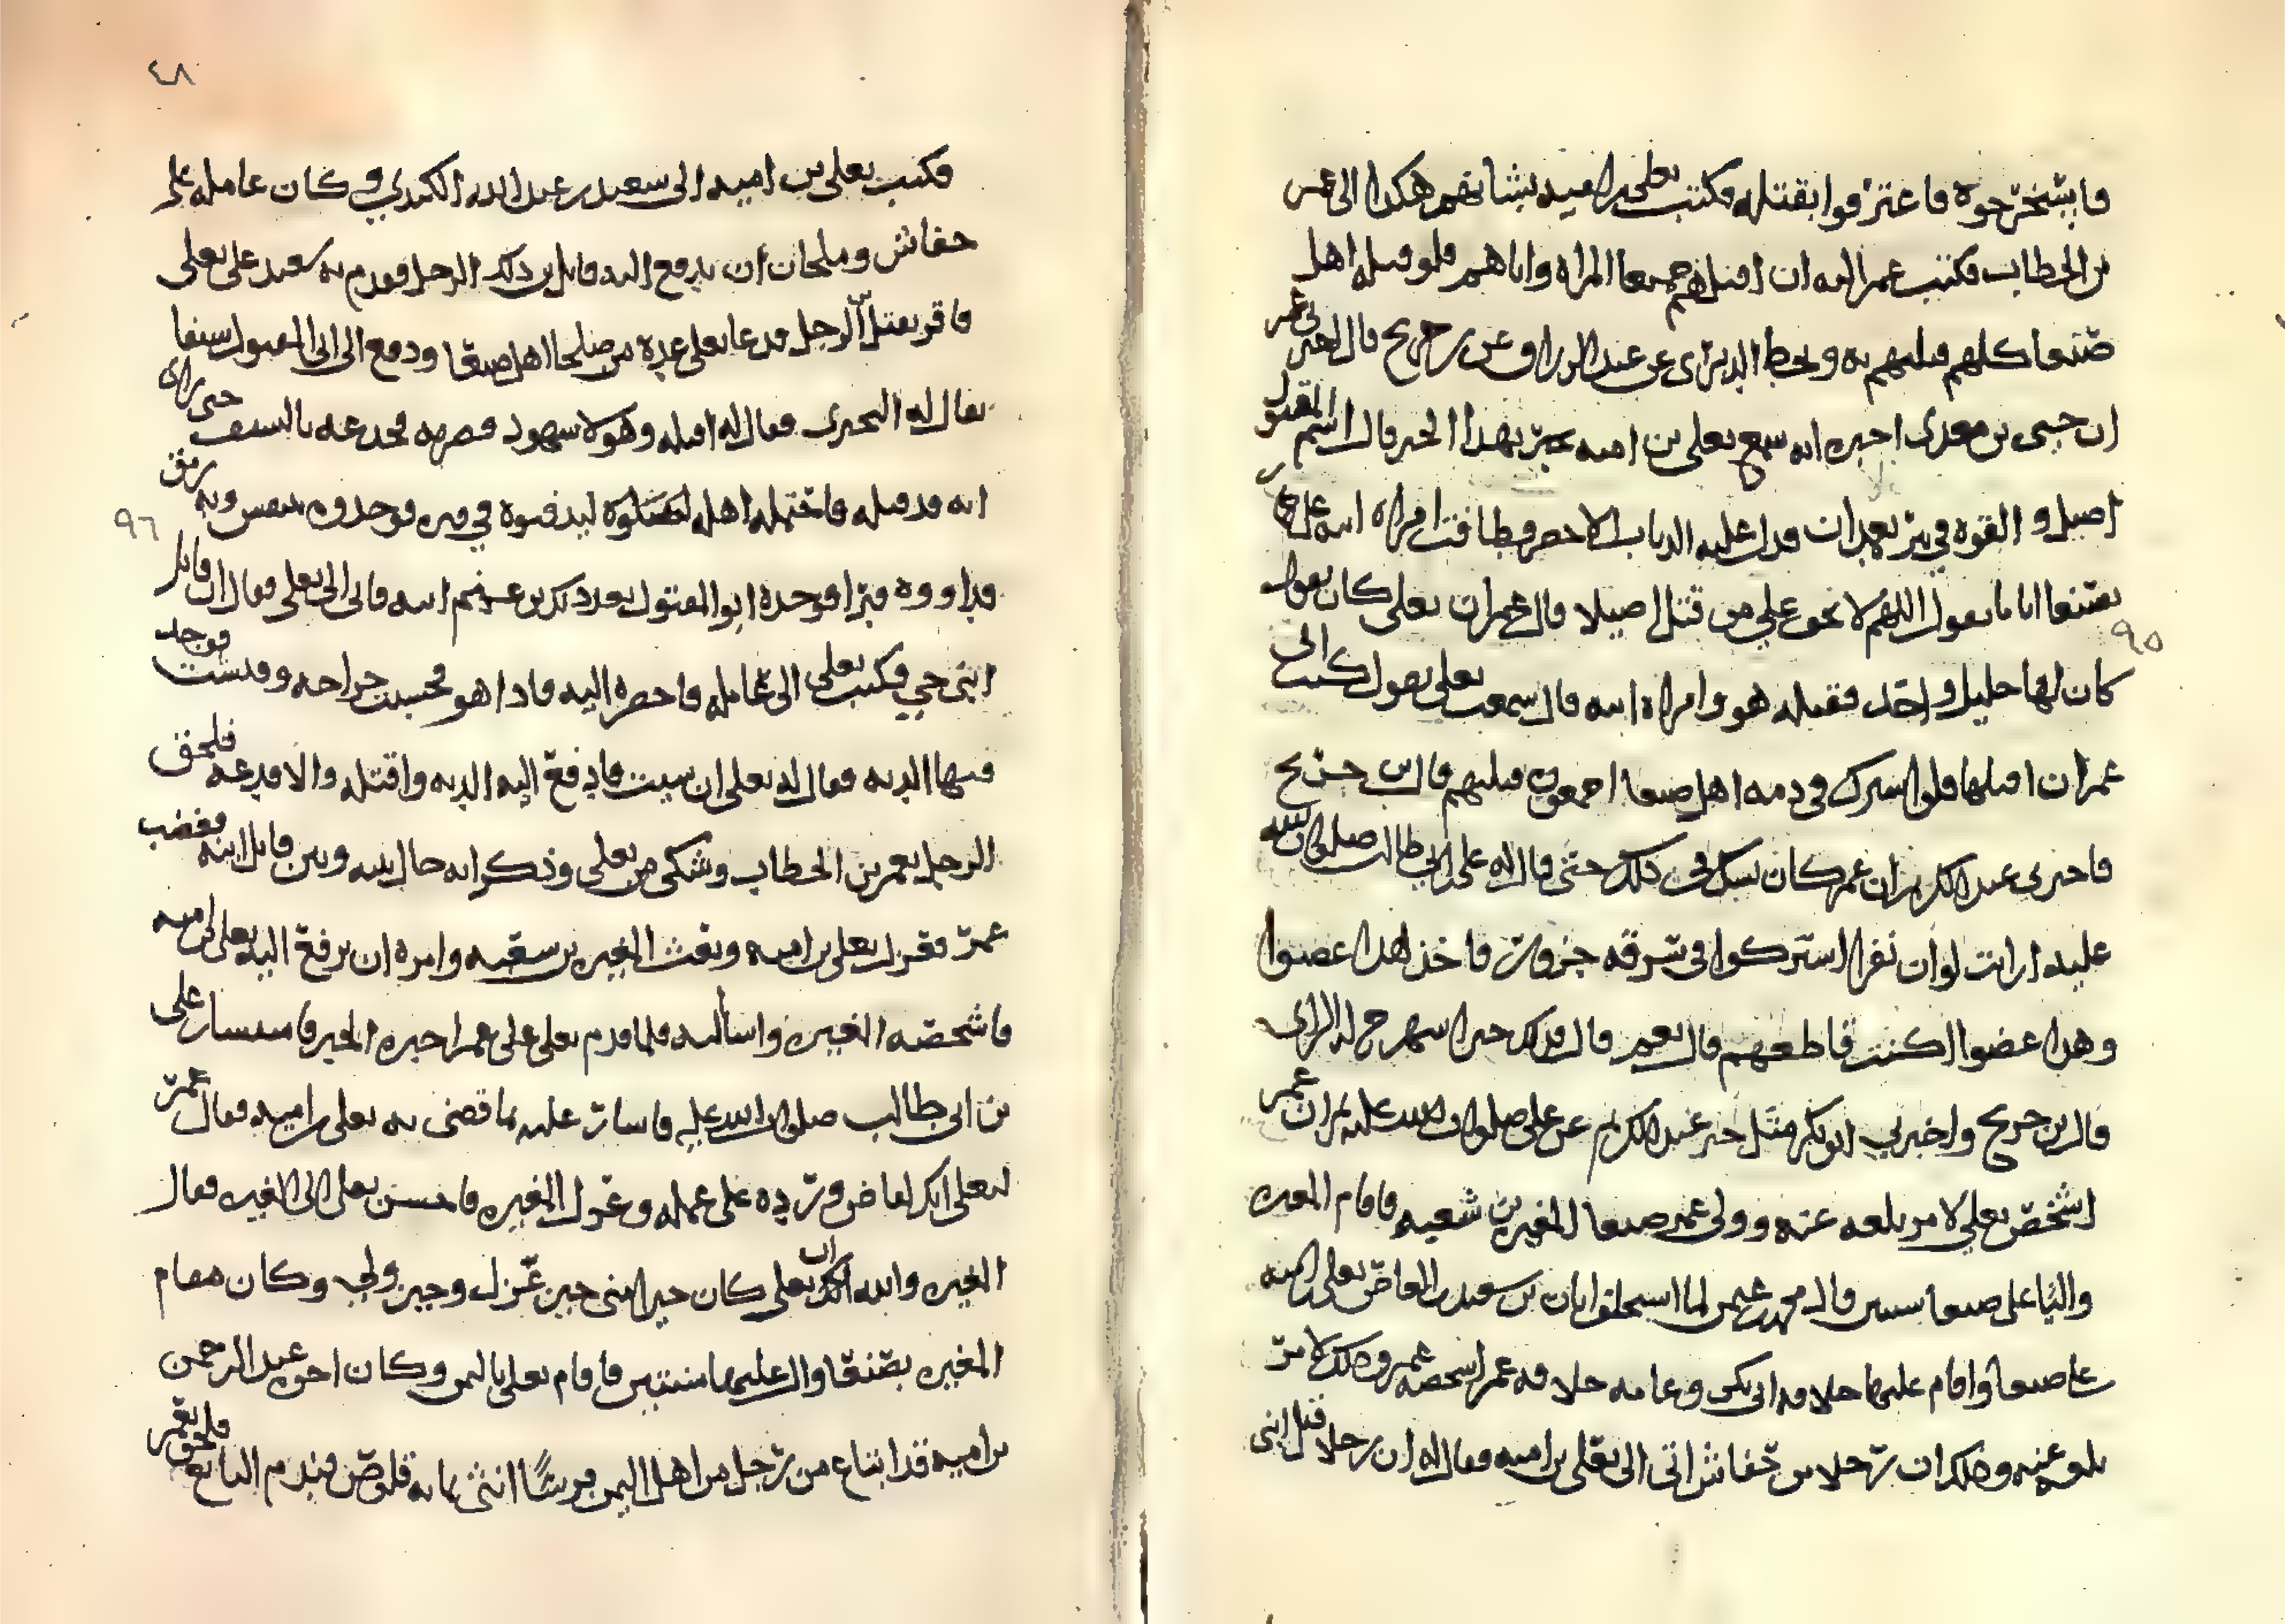 فاستخرجوه فاعترفوا بقتله فكتب يعلى بن اميه بشانهم هكذا الى عمر
بن الخطاب فكتب عمر اليه ان اقتلهم جميعا المراه واياهم فلو قتله اهل
صنعا كلهم قتلتهم به وبخط الدبري عن عبد الرزاق عن بن جريج قال اخبرني عمر
ان حيى بن يعلى اخبره انه سمع يعلى بن اميه يخبر بهذا الخبر قال اسم المقتول
اصيل والقوه في بير بغمدان فدل عليه الذباب الاخضر وطافت امراه ابيه على حمار
بصنعا اياما تقول اللهم لا تخفي علي من قتل اصيلا قال عمر ان يعلى كان يقول
كان لها خليل واحد فقتله هو وامراه ابيه قال سمعت يعلى يقول كتب الي
٩٥
عمر ان اقتلهما فلو اشترك في دمه اهل صنعا اجمعون قتلتهم قال بن جريج
فاخبرني عبد الكريم ان عمر كان يشك في ذلك حتى قال له علي بن ابي طالب صلوات الله
عليه ارايت لو ان نفرا اشتركوا في سرقه جزور فاخذ هذا عضوا
وهذا عضوا اكنت قاطعهم قال نعم قال فذلك حين استمرح له الراي
قال بن جريج واخبرني ابو بكر مثل خبر عبد الكريم عن علي صلوات الله عليه ثم ان عمر
اشخص يعلى لامر بلغه عنه وولى عمر صنعا المغيره بن شعبه فاقام المغيره
واليا على صنعا سنتين قال محمد بن عمر لما استخلف ابان بن سعيد بن العاص يعلى بن اميه
على صنعا واقام عليها خلافه ابي بكر وعامه خلافه عمر اشخصه عمر وذلك لامر
بلغه عنه وذلك ان رجلا من حفاش اتى الى يعلى بن اميه فقال له ان رجلا قتل ابني
٤٨
فكتب يعلى بن اميه الى سعيد بن عبد الله الكندي وكان عامله على
حفاش وملحان ان يدفع اليه قاتل بن ذلك الرجل فقدم به سعيد على يعلى
فاقر بقتل بن الرجل فدعا يعلى عده من صلحا اهل صنعا ودفع الى ابي المقتول سيفا
يقال له البحيري فقال له اقتله وهولا شهود فضربه فجدعه بالسيف حتى راى
انه قد قتله فاحتمله اهله ليدفنوه في قبره فوجدوه يتنفس وبه رمق
٩٦
فداووه فبرا فوجده ابو المقتول بعد ذلك يرعى غنم ابيه فاتى الى يعلى فقال ان قاتل
ابني حي فكتب يعلى الى عامله فاحضره اليه فاذا هو فحسبت جراحه وقيست فوجد
فيها الديه فقال له يعلى ان شيت فادفع اليه الديه واقتله والا فدعه فلحق
الرجل بعمر بن الخطاب وشكى من يعلى وذكر انه حال بينه وبين قاتل ابنه فغضب
عمر فعزل يعلى بن اميه وبعث المغيره بن شعبه وامره ان يرفع اليه يعلى بن اميه
فاشخصه المغيره واسا اليه فلما قدم يعلى على عمر اخبره الخبر فاستشار علي
بن ابي طالب صلوات الله عليه فاشار عليه بما قضى به يعلى بن اميه فقال عمر
ليعلى انك لقاض ورده على عمله وعزل المغيره فاحسن يعلى الى المغيره فقال
المغيره والله ان يعلى كان خيرا مني حين عزل وحين ولي وكان مقام
المغيره بصنعا واليا عليها سنتين فاقام يعلى باليمن وكان اخوه عبد الرحمن
بن اميه قد ابتاع من رجل من اهل اليمن فرسا انثى بمايه قلوص فندم البايع فلحق بعمر